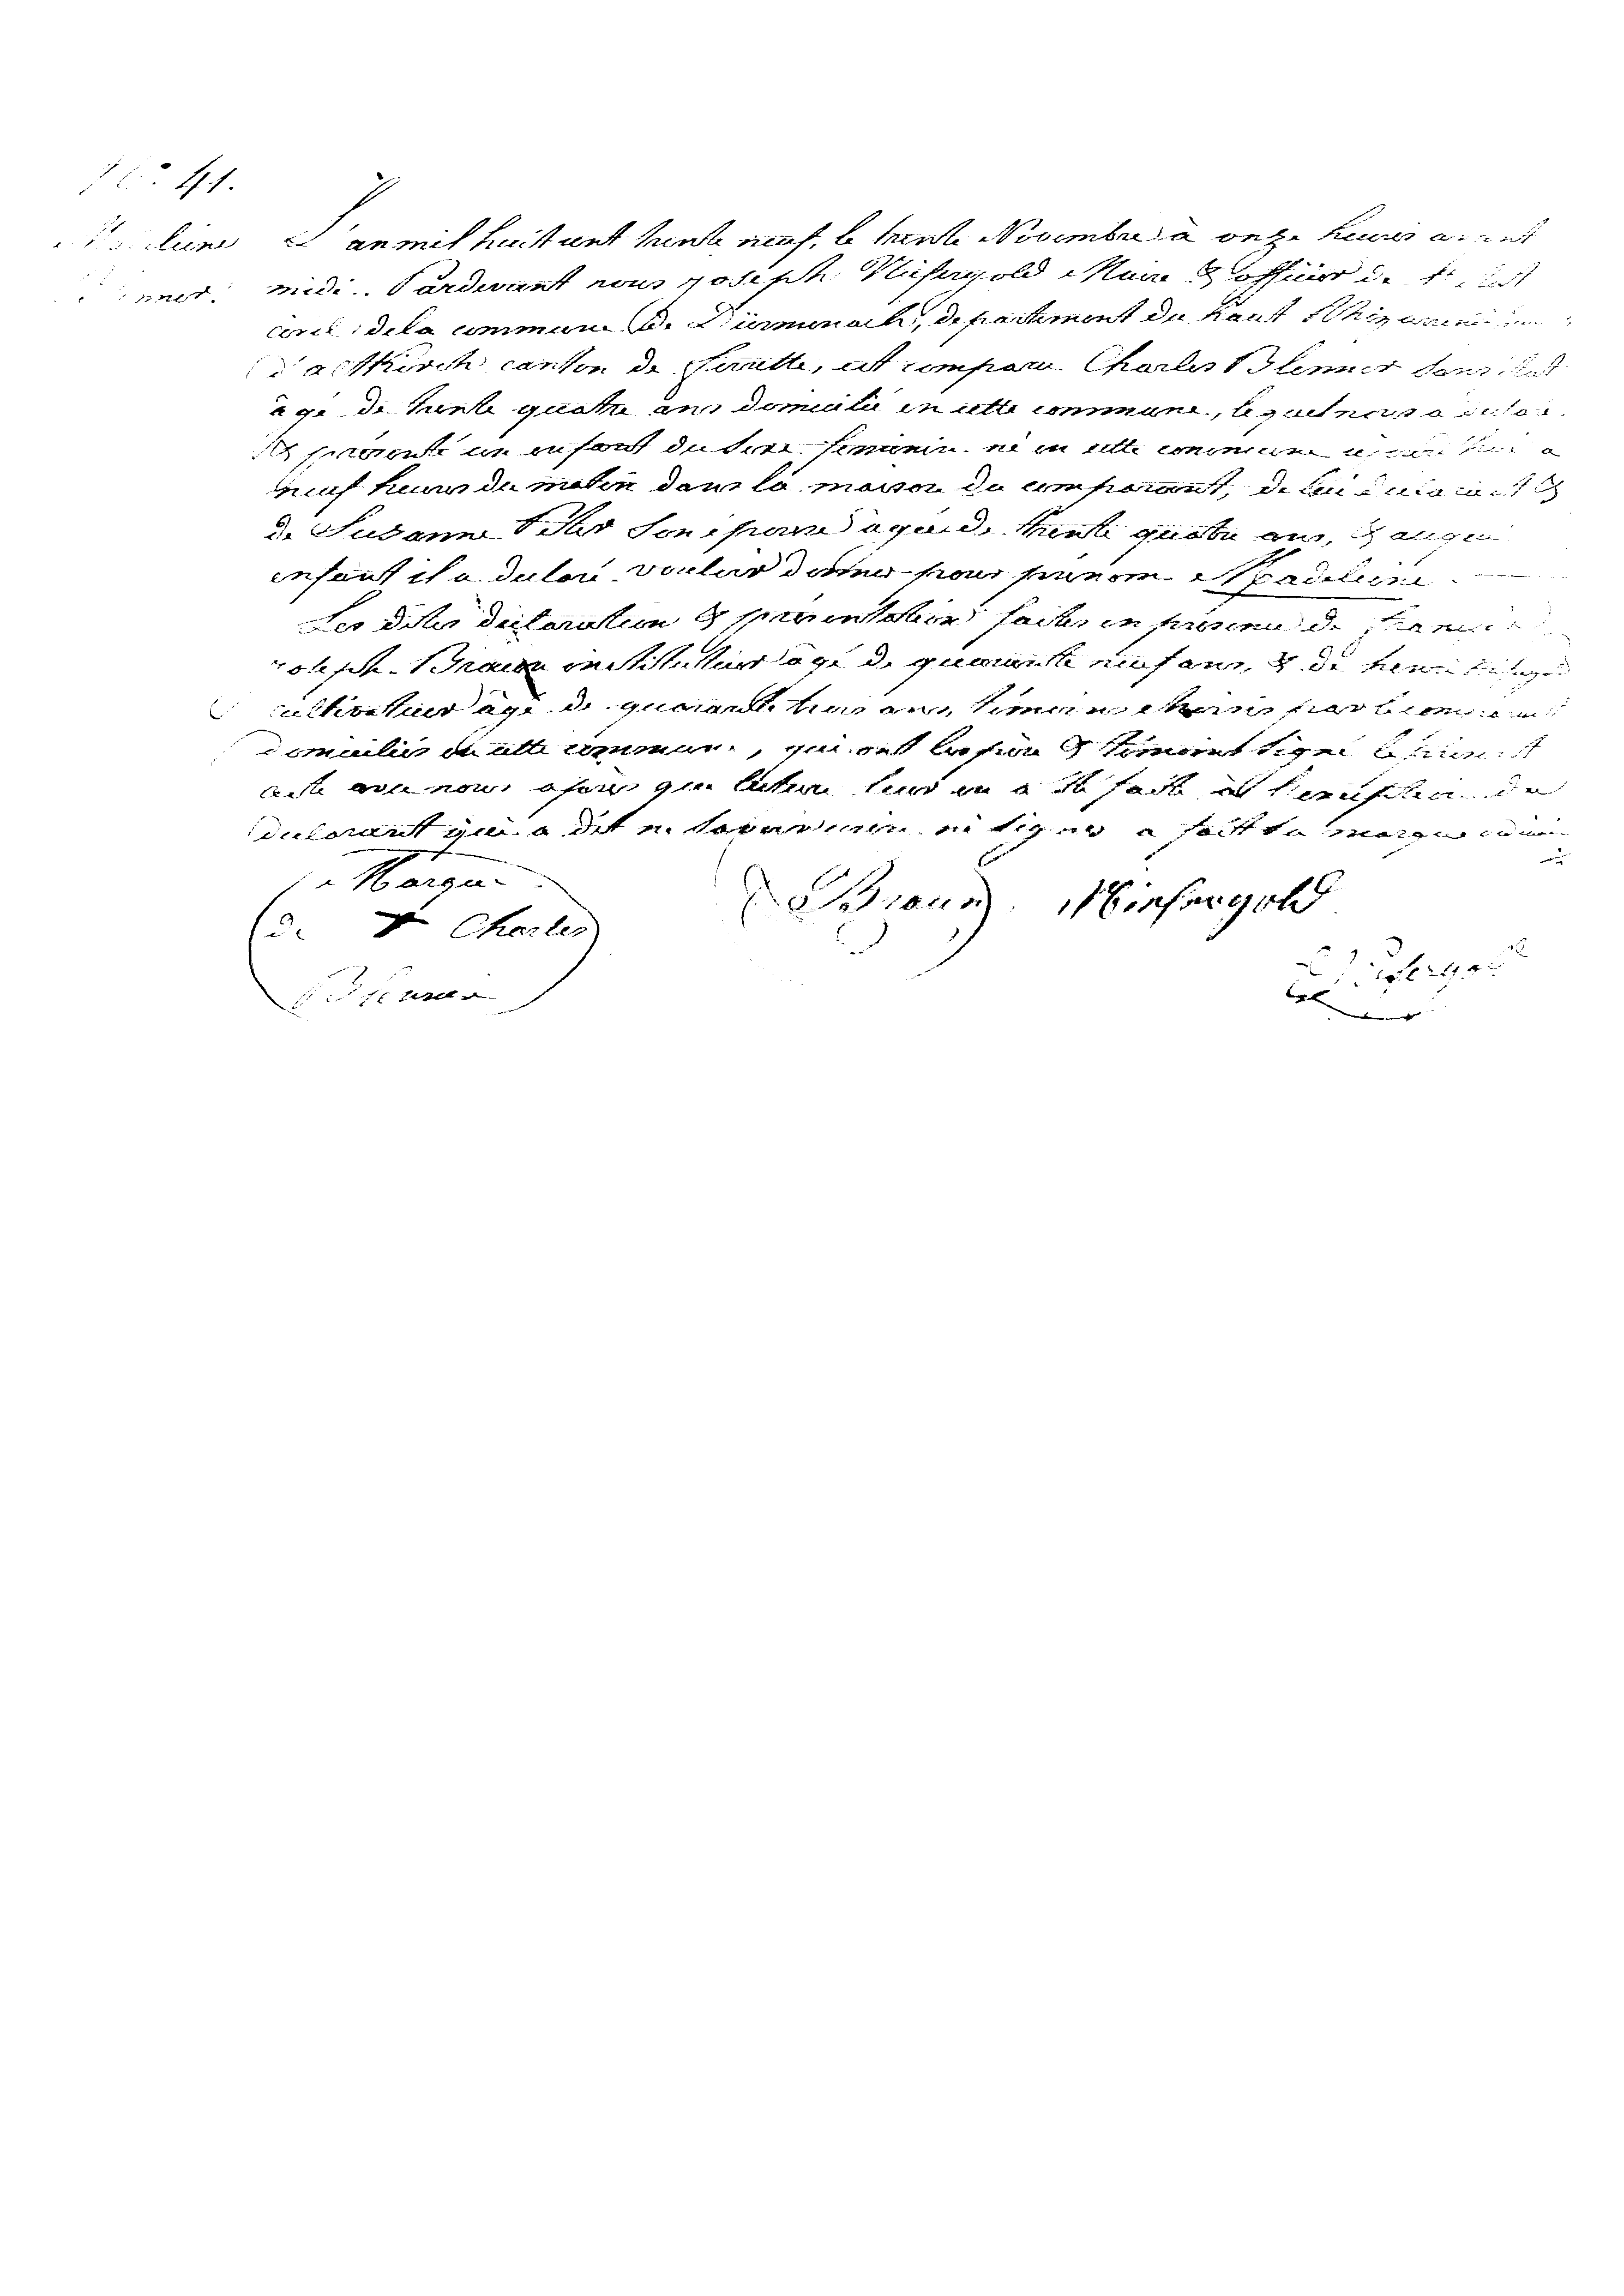 No. 41.
L'an mil huit cent trente neuf, le trente Novembre à onze heures avant
midi. Pardevant nous joseph Niefergold Maire & officier de l'état
civil de la commune de Dürmenach, departement du haut Rhin
d'altkirch canton de ferrette, est comparu Charles Blenner sans état
âgé de trente quatre ans domicilié en cette commune, lequel nous a déclaré
& présenté un enfant du sexe féminin né en cette commune a
neuf heures du matin dans la maison du comparant, de lui déclarant &
de Susanne son épouse âgée de trente quatre ans, & auquel
enfant il a déclaré vouloir donner pour prénom Madeleine
Les dites déclaration & présentation faites en présence de
joseph Braun instituteur âgé de quarante neuf ans, & de henri
cultivateur âgé de quarante trois ans, témoins choisis par le comparant
domiciliés en cette commune, qui ont les père & témoins signé le présent
acte avec nous après que lecture leur en a été faite à l'exception du
déclarant qui a dit ne savoir écrire ni signer a fait sa marque
Marque
de + Charles
Blenner
Braun Niefergold